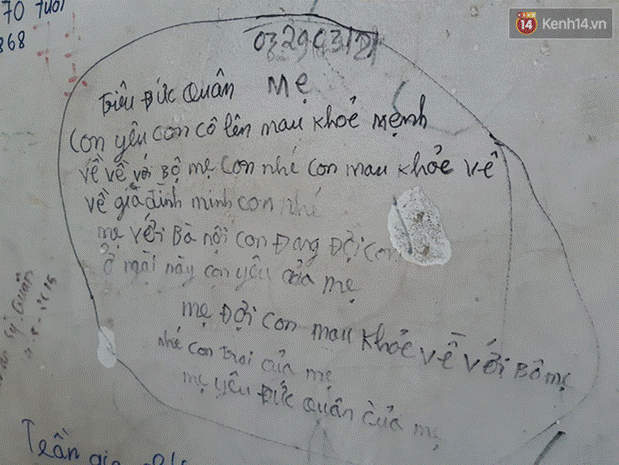 70 TUỔI
868
14 Kenh14.vn
Triệu Đức Quân Mẹ
Con yêu con cô lên mau khoẻ mệnh
về về với Bộ mẹ con nhé con mau khỏe về
về gia đình minh con nhé
mẹ với Bà nội con Đang Đợi con
ở ngoài này con yêu của mẹ
mẹ Đợi con mau khỏe về với Bô mẹ
nhé con trai của mẹ
mẹ yêu Đức Quân của mẹ
Sỹ Quân
Trần gia